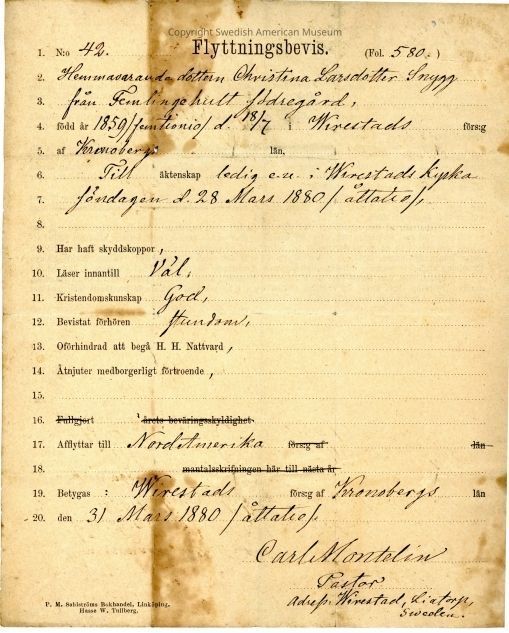 Copyright Swedish American Museum
1. N:o 42. Flyttningsbevis. (Fol. 580.)
2. Hemmavarande dottern Christina Larsdotter Snygg
3. från Femlingehult Södregård,
4. född år 1859/femtionio/ d. 18/7 i Wirestads förs:g
5. af Kronobergs län,
6. Till äktenskap ledig e.u. i Wirestads Kyrka
7. söndagen d. 28 Mars 1880/åttatio/,
8.
9. Har haft skyddskoppor,
10. Läser innantill Väl,
11. Kristendomskunskap God,
12. Bevistat förhören stundom,
13. Oförhindrad att begå H. H. Nattvard,
14. Åtnjuter medborgerligt förtroende,
15.
16. Fullgjort årets beväringsskyldighet
17. Afflyttar till NordAmerika förs:g af län
18. mantalsskrifningen här till nästa år
19. Betygas: Wirestads förs:g af Kronobergs län
20. den 31 Mars 1880/åttatio/.
Carl Montelin
Pastor
Adress Wirestad, Liatorp,
Sweden.
P. M. Sahlströms Bokhandel, Linköping.
Hasse W. Tullberg.